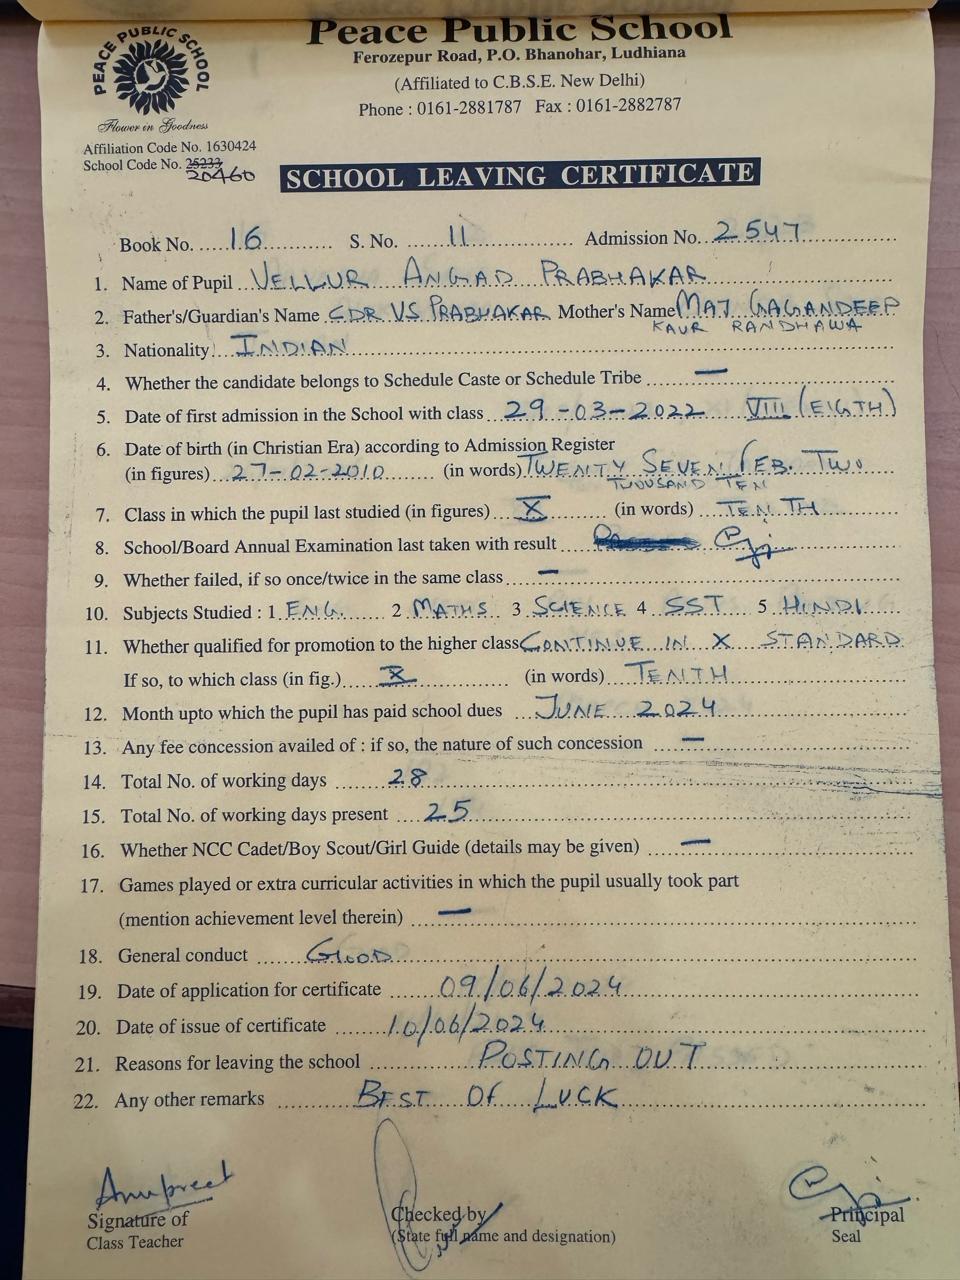 PEACE PUBLIC SCHOOL
Flower in Goodness
Affiliation Code No. 1630424
School Code No. 25233
20460
Peace Public School
Ferozepur Road, P.O. Bhanohar, Ludhiana
(Affiliated to C.B.S.E. New Delhi)
Phone : 0161-2881787 Fax : 0161-2882787
SCHOOL LEAVING CERTIFICATE
Book No. 16 S. No. 11 Admission No. 2547
1. Name of Pupil VELLUR ANGAD PRABHAKAR
2. Father's/Guardian's Name CDR VS PRABHAKAR Mother's Name MAJ GAGANDEEP
KAUR RANDHAWA
3. Nationality INDIAN
4. Whether the candidate belongs to Schedule Caste or Schedule Tribe —
5. Date of first admission in the School with class 29-03-2022 VIII (EIGTH)
6. Date of birth (in Christian Era) according to Admission Register
(in figures) 27-02-2010 (in words) TWENTY SEVEN FEB. TWO
THOUSAND TEN
7. Class in which the pupil last studied (in figures) X (in words) TENTH
8. School/Board Annual Examination last taken with result
9. Whether failed, if so once/twice in the same class —
10. Subjects Studied : 1 ENG. 2 MATHS 3 SCIENCE 4 SST 5 HINDI
11. Whether qualified for promotion to the higher class CONTINUE IN X STANDARD
If so, to which class (in fig.) X (in words) TENTH
12. Month upto which the pupil has paid school dues JUNE 2024
13. Any fee concession availed of : if so, the nature of such concession —
14. Total No. of working days 28
15. Total No. of working days present 25
16. Whether NCC Cadet/Boy Scout/Girl Guide (details may be given) —
17. Games played or extra curricular activities in which the pupil usually took part
(mention achievement level therein) —
18. General conduct GOOD
19. Date of application for certificate 09/06/2024
20. Date of issue of certificate 10/06/2024
21. Reasons for leaving the school POSTING OUT
22. Any other remarks BEST OF LUCK
Anupreet
Signature of
Class Teacher
Checked by
(State full name and designation)
Principal
Seal